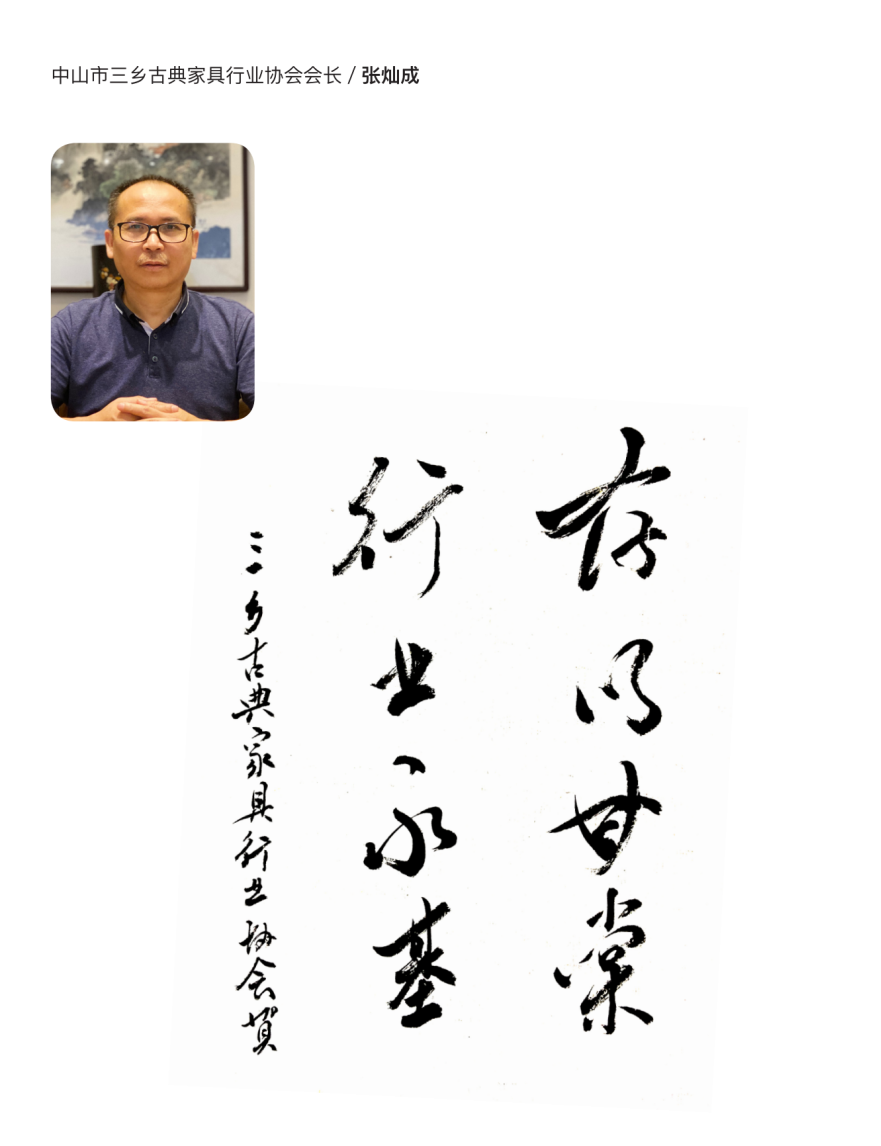 中山市三乡古典家具行业协会会长 / 张灿成
存以甘棠
行业永基
三乡古典家具行业协会贺